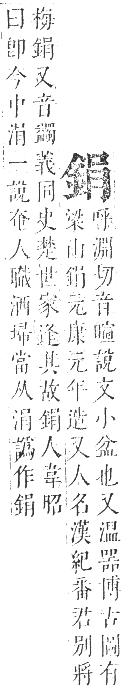 鋗
呼淵切音暄說文小盆也又溫器博古圖有
梁山鋗元康元年造又人名漢紀番君別將
梅鋗又音蠲義同史楚世家逢其故鋗人韋昭
曰卽今中涓一說奄人職洒埽當从涓譌作鋗